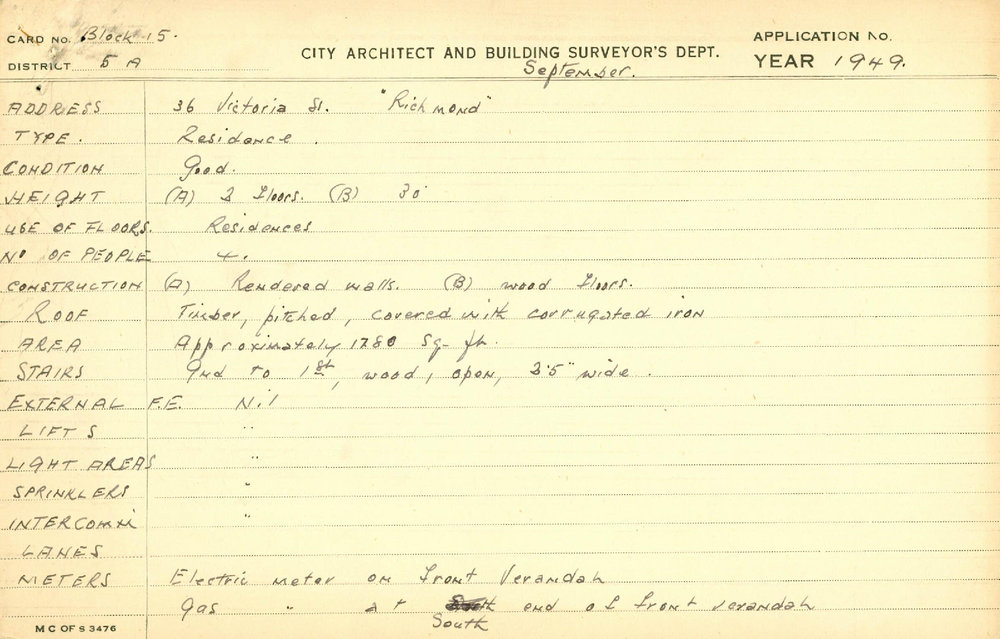 CARD NO. Block 15.
DISTRICT 5 A
CITY ARCHITECT AND BUILDING SURVEYOR'S DEPT.
September.
APPLICATION NO.
YEAR 1949.
ADDRESS 36 Victoria St. "Richmond"
TYPE. Residence.
CONDITION Good.
HEIGHT (A) 2 floors. (B) 30'
USE OF FLOORS. Residences
No OF PEOPLE 4.
CONSTRUCTION (A) Rendered walls. (B) wood floors.
ROOF Timber, pitched, covered with corrugated iron
AREA Approximately 1780 sq. ft.
STAIRS Gnd to 1st, wood, open, 3'5" wide.
EXTERNAL F.E. Nil
LIFTS "
LIGHT AREAS "
SPRINKLERS "
INTERCOMM "
LANES
METERS Electric meter on front Verandah
Gas " at South end of front verandah
M C OF S 3476